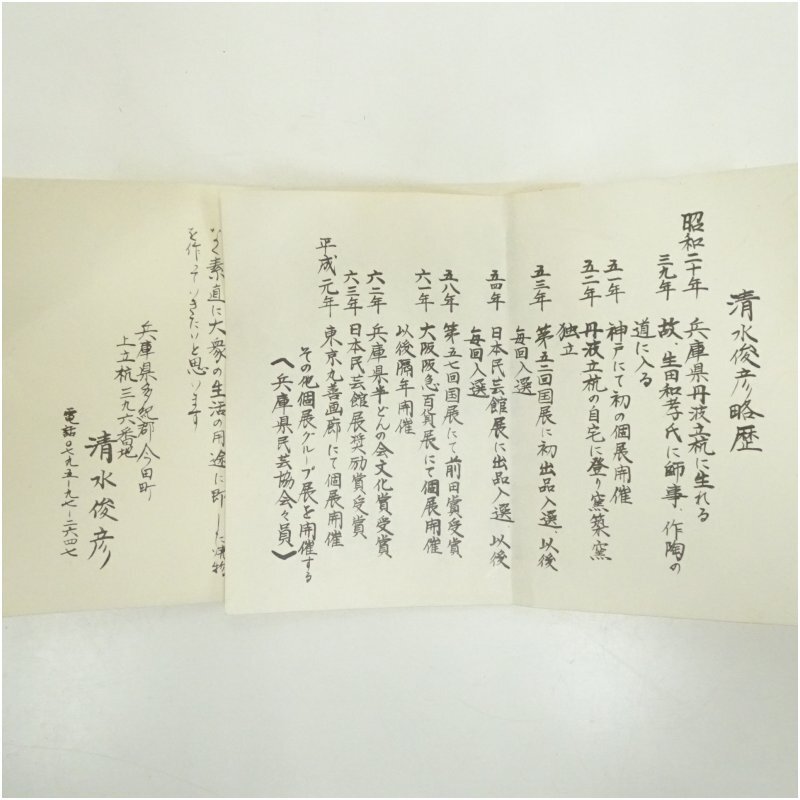 清水俊彦略歴
昭和二十年 兵庫県丹波立杭に生れる
三九年 故、生田和孝氏に師事、作陶の
道に入る
五一年 神戸にて初の個展開催
五二年 丹波立杭の自宅に登り窯築窯
独立
五三年 第五二回国展に初出品入選、以後
毎回入選
五四年 日本民芸館展に出品入選 以後
毎回入選
五八年 第五七回国展にて前田賞受賞
六一年 大阪阪急百貨展にて個展開催
以後隔年開催
六二年 兵庫県半どんの会文化賞受賞
六三年 日本民芸館展奨励賞受賞
平成元年 東京丸善画廊にて個展開催
その他個展グループ展を開催する
(兵庫県民芸協会々員)
なく素直に大衆の生活の用途に即した焼物
を作っていきたいと思います
兵庫県多紀郡今田町
上立杭三九六番地
清水俊彦
電話〇七九五-九七-二六四七